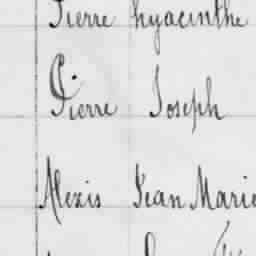 Pierre hyacinthe
Pierre Joseph
Alexis Jean Marie